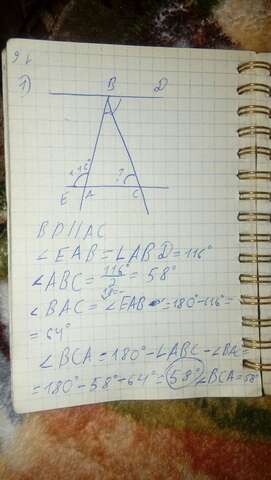 9 г
1)
B D
116°
?
E A C
BD//AC
∠EAB=∠ABD=116°
∠ABC=116°/2=58°
∠BAC=180°-∠EAB=180°-116°=
=64°
∠BCA=180°-∠ABC-∠BAC=
=180°-58°-64°=58° ∠BCA=58°